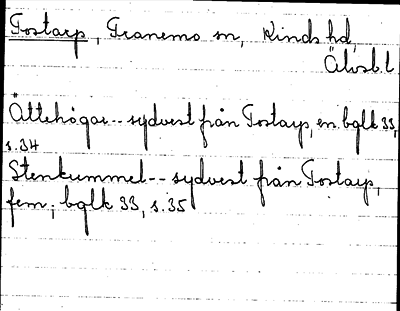 Tostarp, Tranemo sn, Kinds hd,
Älvsb. l
Ättehögar -- sydvest från Tostarp, en. bglk 33,
s. 34
Stenkummel -- sydvest från Tostarp,
fem; bglk 33, s. 35